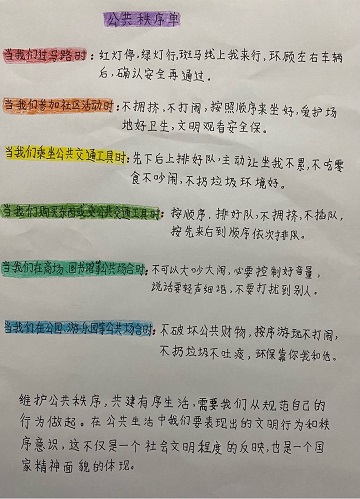 公共秩序单
当我们过马路时：红灯停，绿灯行，斑马线上我来行，环顾左右车辆
后，确认安全再通过。
当我们参加社区活动时：不拥挤，不打闹，按照顺序来坐好，爱护场
地好卫生，文明观看安全保。
当我们乘坐公共交通工具时：先下后上排好队，主动让坐我不累，不吃零
食不吵闹，不扔垃圾环境好。
当我们购买东西或乘公共交通工具时：按顺序，排好队，不拥挤，不插队，
按先来后到顺序依次排队。
当我们在商场、图书馆等公共场合时：不可以大吵大闹，必要控制好音量，
说话要轻声细语，不要打扰到别人。
当我们在公园、游乐园等公共场合时：不破坏公共财物，按序游玩不打闹，
不扔垃圾不吐痰，环保靠你我和他。
维护公共秩序，共建有序生活，需要我们从规范自己的
行为做起。在公共生活中我们要表现出的文明行为和秩
序意识，这不仅是一个社会文明程度的反映，也是一个国
家精神面貌的体现。